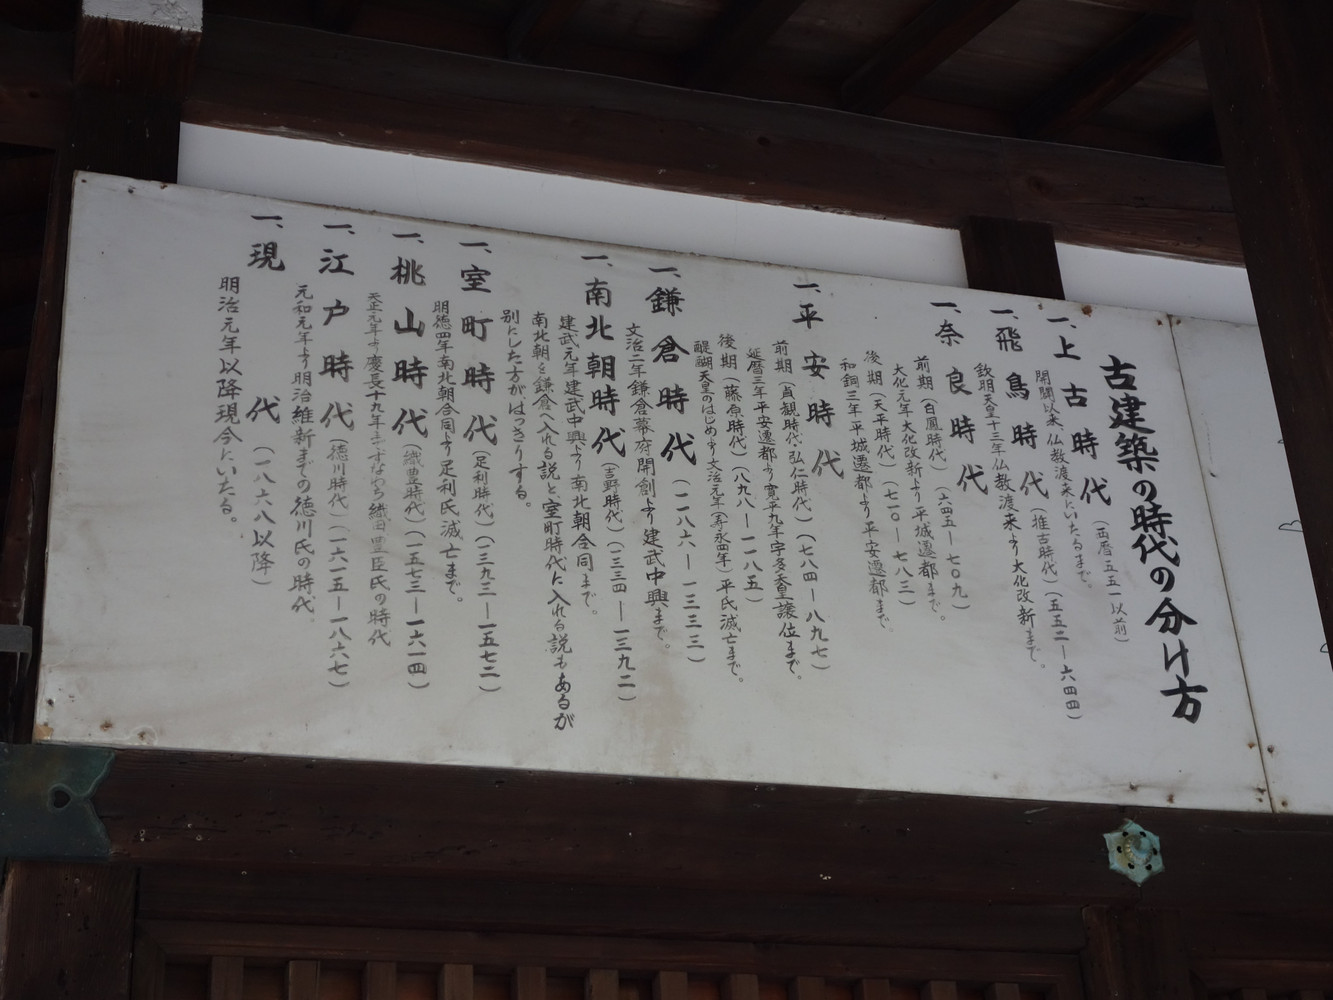 古建築の時代の分け方
一、上古時代（西暦五五一以前）
開闢以来、仏教渡来にいたるまで。
一、飛鳥時代（推古時代）（五五二―六四四）
欽明天皇十三年仏教渡来より大化改新まで。
一、奈良時代
前期（白鳳時代）（六四五―七〇九）
大化元年大化改新より平城遷都まで。
後期（天平時代）（七一〇―七八三）
和銅三年平城遷都より平安遷都まで。
一、平安時代
前期（貞観時代・弘仁時代）（七八四―八九七）
延暦三年平安遷都より寛平九年宇多天皇譲位まで。
後期（藤原時代）（八九八―一一八五）
醍醐天皇のはじめより文治元年（寿永四年）平氏滅亡まで。
一、鎌倉時代（一一八六―一三三三）
文治二年鎌倉幕府開創より建武中興まで。
一、南北朝時代（吉野時代）（一三三四―一三九二）
建武元年建武中興より南北朝合同まで。
南北朝を鎌倉へ入れる説と、室町時代に入れる説もあるが
別にした方がはっきりする。
一、室町時代（足利時代）（一三九三―一五七二）
明徳四年南北朝合同より足利氏滅亡まで。
一、桃山時代（織豊時代）（一五七三―一六一四）
天正元年より慶長十九年まですなわち織田豊臣氏の時代
一、江戸時代（徳川時代）（一六一五―一八六七）
元和元年より明治維新までの徳川氏の時代。
一、現代（一八六八以降）
明治元年以降現今にいたる。